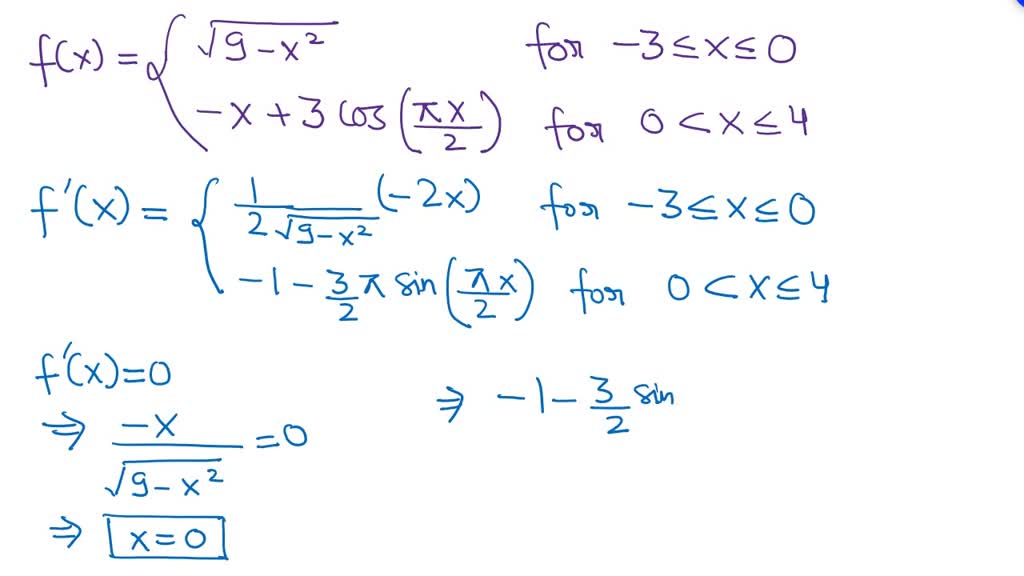 f(x) = { √(9-x²) for -3≤x≤0
-x+3 cos(πx/2) for 0<x≤4
f'(x) = { 1/(2√(9-x²)) (-2x) for -3≤x≤0
-1 - 3/2 π sin(πx/2) for 0<x≤4
f'(x)=0
⇒ -x/√(9-x²) = 0
⇒ x=0
⇒ -1 - 3/2 sin